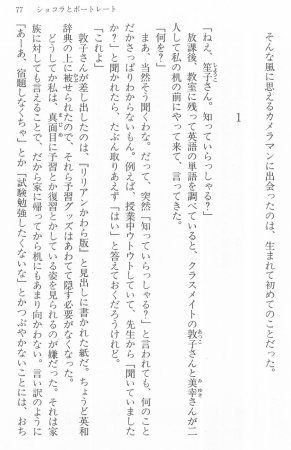 77　ショコラとポートレート
そんな風に思えるカメラマンに出会ったのは、生まれて初めてのことだった。
1
「ねえ、笙子さん。知っていらっしゃる？」
放課後、教室に残って英語の単語を調べていると、クラスメイトの敦子さんと美幸さんが二
人して私の机の前にやって来て、言ってきた。
「何を？」
まあ、当然そう聞くわな。だって、突然「知っていらっしゃる？」と言われても、何のこと
だかさっぱりわからないもん。例えば、授業中ウトウトしていて、先生から「聞いていました
か？」と聞かれたら、たぶん取りあえず「はい」と答えておくだろうけれど。
「これよ」
敦子さんが差し出したのは、『リリアンかわら版』と見出しに書かれた紙だ。ちょうど英和
辞典の上に被せられたので、それら予習グッズはあわてて隠す必要がなくなった。
どうしてか私は、真面目に予習とか復習とかしている姿を見られるのが嫌だった。それは家
族に対しても言えることで、だから家に帰ってから机にもあまり向かわない。言い訳のように
「あーあ、宿題しなくちゃ」とか「試験勉強したくないな」とかつぶやかないことには、おち